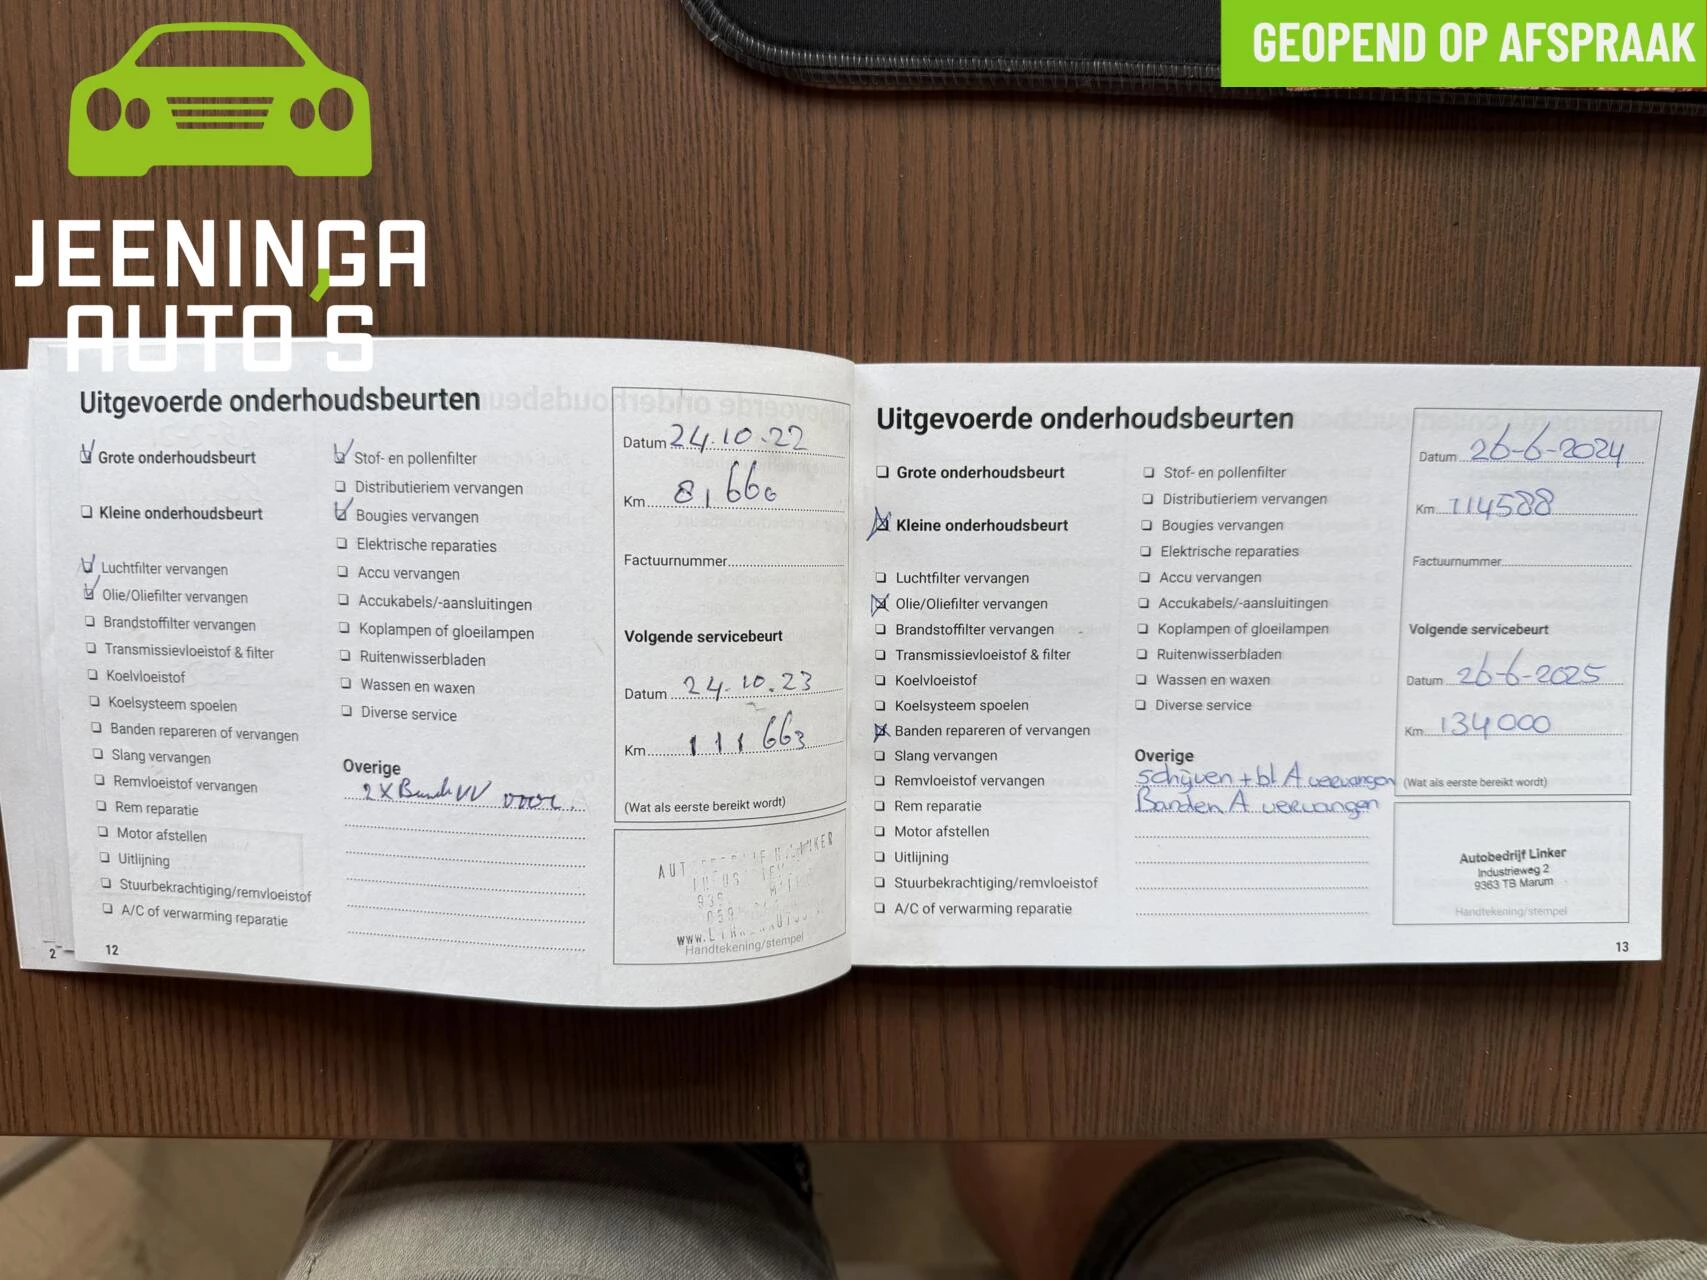 GEOPEND OP AFSPRAAK
JEENINGA
AUTO'S
Uitgevoerde onderhoudsbeurten
Grote onderhoudsbeurt
Kleine onderhoudsbeurt
Luchtfilter vervangen
Olie/Oliefilter vervangen
Brandstoffilter vervangen
Transmissievloeistof & filter
Koelvloeistof
Koelsysteem spoelen
Banden repareren of vervangen
Slang vervangen
Remvloeistof vervangen
Rem reparatie
Motor afstellen
Uitlijning
Stuurbekrachtiging/remvloeistof
A/C of verwarming reparatie
2
12
Stof- en pollenfilter
Distributieriem vervangen
Bougies vervangen
Elektrische reparaties
Accu vervangen
Accukabels/-aansluitingen
Koplampen of gloeilampen
Ruitenwisserbladen
Wassen en waxen
Diverse service
Overige
2x Band VV voor.
Datum 24.10.22
Km 81660
Factuurnummer
Volgende servicebeurt
Datum 24.10.23
Km 111663
(Wat als eerste bereikt wordt)
Handtekening/stempel
Uitgevoerde onderhoudsbeurten
Grote onderhoudsbeurt
Kleine onderhoudsbeurt
Luchtfilter vervangen
Olie/Oliefilter vervangen
Brandstoffilter vervangen
Transmissievloeistof & filter
Koelvloeistof
Koelsysteem spoelen
Banden repareren of vervangen
Slang vervangen
Remvloeistof vervangen
Rem reparatie
Motor afstellen
Uitlijning
Stuurbekrachtiging/remvloeistof
A/C of verwarming reparatie
Stof- en pollenfilter
Distributieriem vervangen
Bougies vervangen
Elektrische reparaties
Accu vervangen
Accukabels/-aansluitingen
Koplampen of gloeilampen
Ruitenwisserbladen
Wassen en waxen
Diverse service
Overige
schijven + bl A vervangen
Banden A vervangen
Datum 26-6-2024
Km 114588
Factuurnummer
Volgende servicebeurt
Datum 26-6-2025
Km 134000
(Wat als eerste bereikt wordt)
Autobedrijf Linker
Industrieweg 2
9363 TB Marum
Handtekening/stempel
13